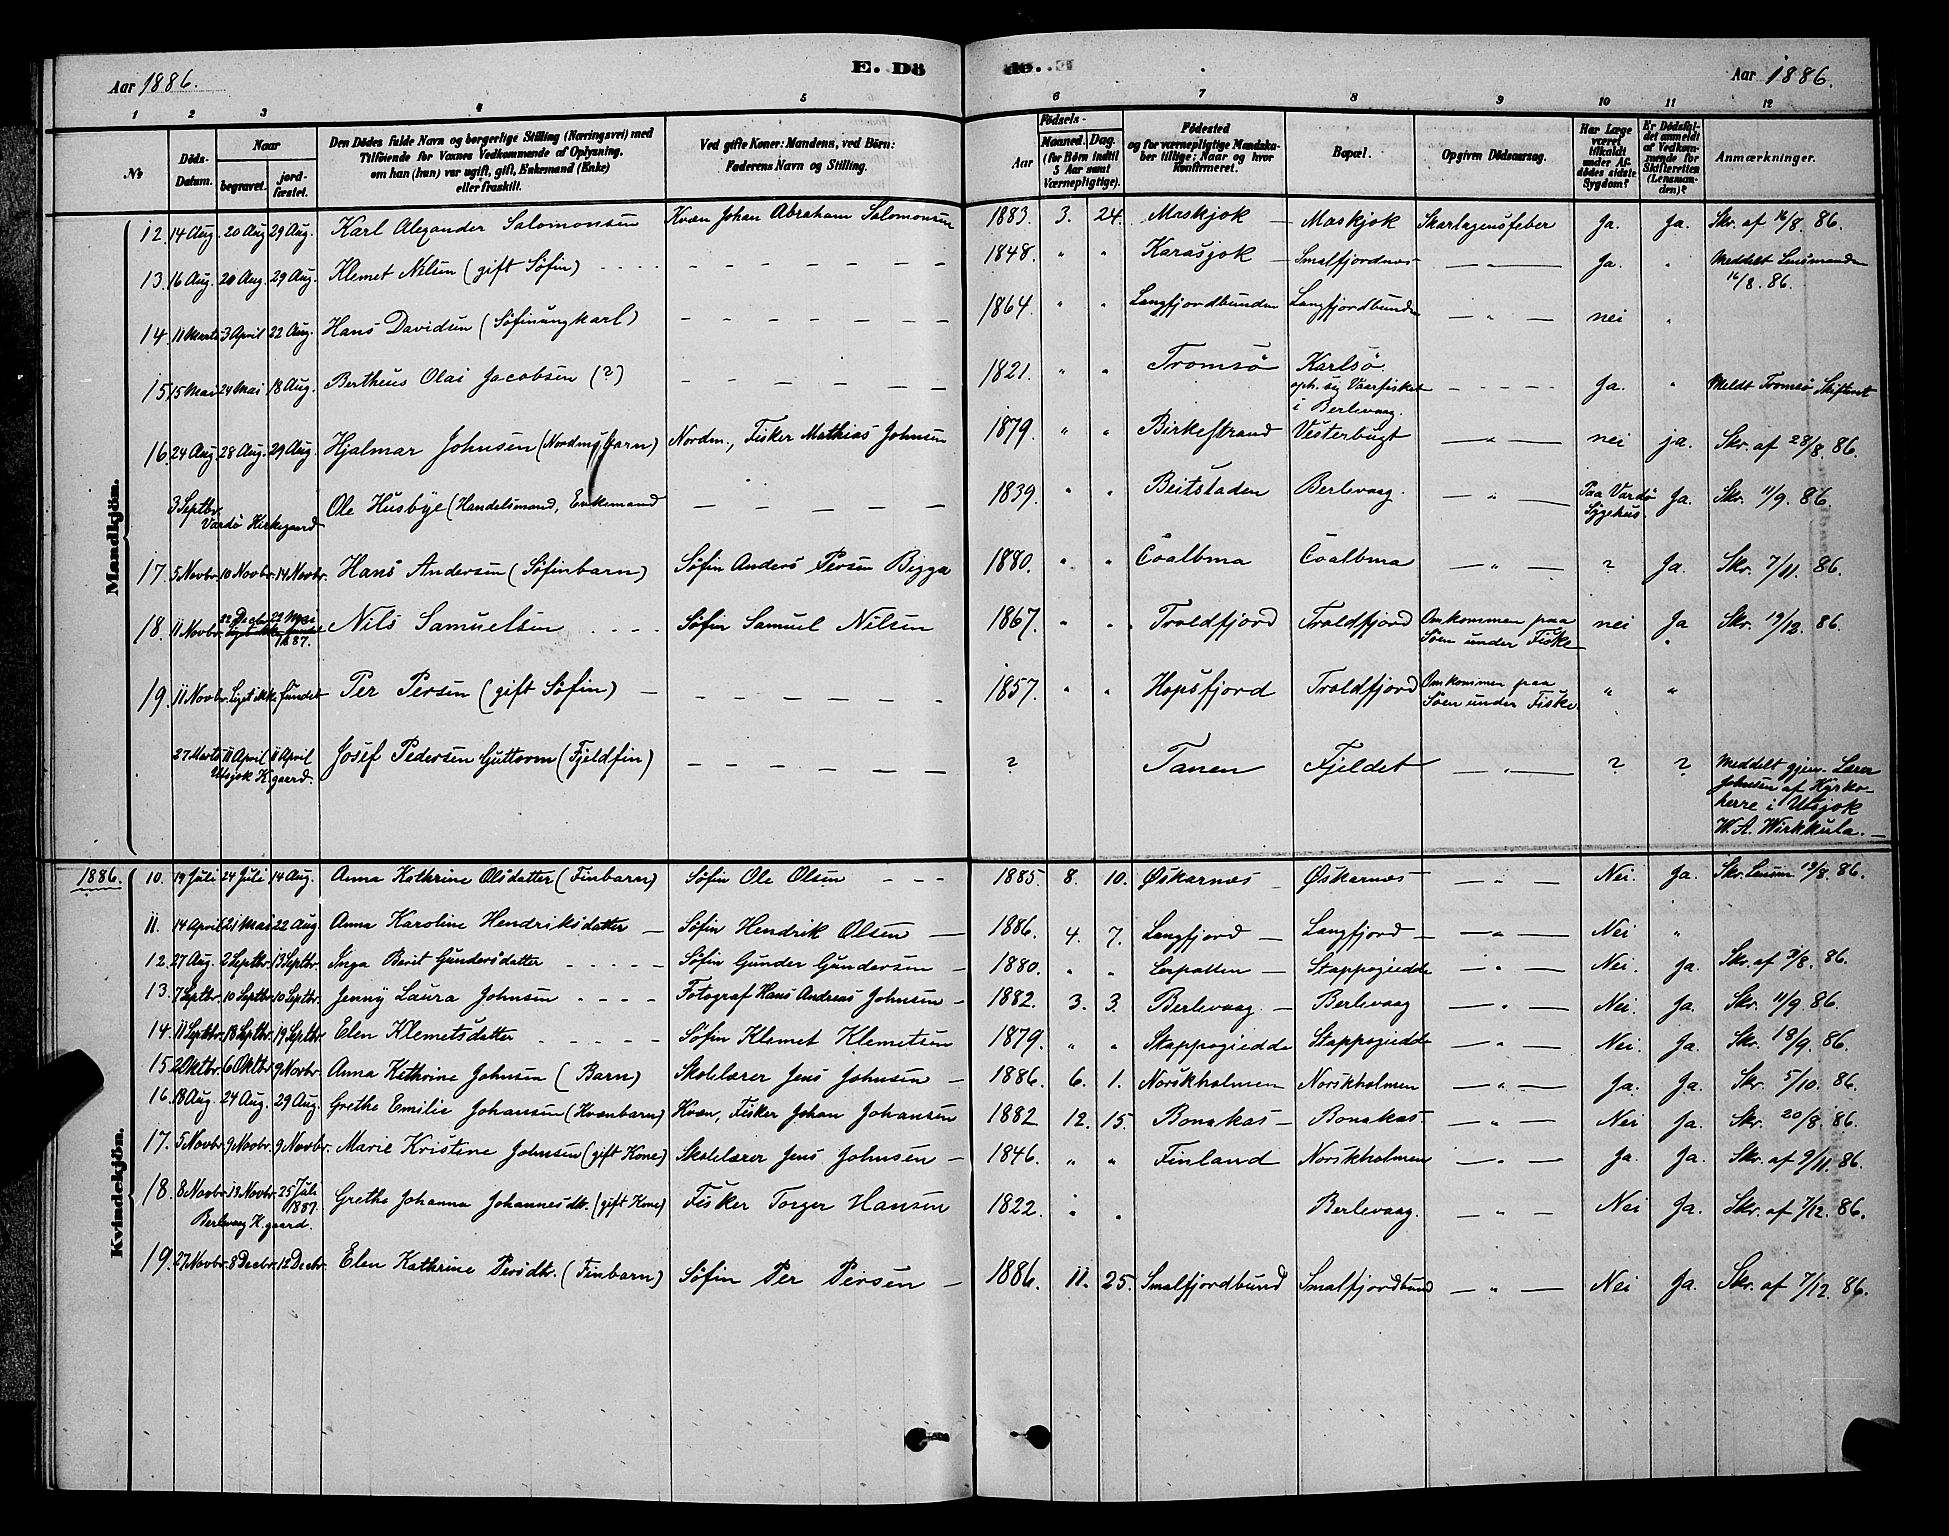 Aar 1886. E. Dö
de. Aar 1886.
1 2 3 4 5 6 7 8 9 10 11 12
No | Döds-Datum. | Naar begravet. | jordfæstet. | Den Dödes fulde Navn og borgerlige Stilling (Næringsvei) med Tilföiende for Voxnes Vedkommende af Oplysning, om han (hun) var ugift, gift, Enkemand (Enke) eller fraskilt. | Ved gifte Koner: Mandens, ved Börn: Faderens Navn og Stilling. | Aar | Födsels- Maaned. Dag. (for Börn indtil 5 Aar samt Værnepligtige). | Födested og for værnepligtige Mandskaber tillige: Naar og hvor konfirmeret. | Bopæl. | Opgiven Dödsaarsag. | Har Læge været tilkaldt under Afdödes sidste Sygdom? | Er Dödsfaldet anmeldt af Vedkommende for Skifteretten (Lensmanden)? | Anmærkninger.
Mandkjön.
12. 14 Aug. 20 Aug 29 Aug. Karl Alexander Salomonsen Kvæn Johan Abraham Salomonsen 1883. 3. 24. Maskjok Maskjok Skarlagensfeber Ja. Ja. Skr. af 16/8. 86.
13. 16 Aug. 20 Aug. 29 Aug. Klemet Nilsen (gift Søfin) 1848. " " Karasjok Smalfjordnes — " — Ja. " Meddelt Lensmanden 16/8. 86.
14. 11 Marts 3 April 22 Aug. Hans Davidsen (Søfinungkarl) 1864. " " Langfjordbunden Langfjordbunden — " — nei "
15. 15 Mai 24 Mai 18 Aug. Bertheus Olai Jacobsen (?) 1821. " " Tromsø Karlsø. oph. sig Vaarfisket i Berlevaag. Ja. " Meldt Tromsø Skifteret
16. 24 Aug. 28 Aug. 29 Aug. Hjalmar Johnsen (Nordmsbarn) Nordm., Fisker Mathias Johnsen 1879. " " Birkestrand Vesterbugt — " — nei ja. Skr. af 28/8. 86.
3 Septbr. Vardø Kirkegaard Ole Husbye (Handelsmand, Enkemand 1839. " " Beitstaden Berlevaag. — " — Paa Vardø Sygehus. Ja. Skr. 11/9. 86.
17. 5 Novbr. 10 Novbr. 14 Novbr. Hans Andersen (Søfinbarn) Søfin Anders Persen Bigga 1880. " " Coalbma Coalbma — " — ? Ja. Skr. 7/11. 86.
18. 11 Novbr. 22 Decbr. 22 Mai 1887. Nils Samuelsen Søfin Samuel Nilsen 1867. " " Troldfjord Troldfjord Omkommen paa Søen under Fiske nei Ja " Skr. 19/12. 86.
19. 11 Novbr. Liget ikke fundet Per Persen (gift Søfin) 1857. " " Hopsfjord Troldfjord Omkommen paa Søen under Fiske. " "
27 Marts 11 April 11 April Utsjok K.gaard. Josef Pedersen Guttorm (Fjeldfin) ? Tanen Fjeldet — " — ? ? Meddelt gjen. Lærer Johnsen af Kyrkoherre i Utsjok W. A. Wirkkula.
Kvindekjön.
1886. 10. 19 Juli 24 Juli 14 Aug. Anna Kathrine Olsdatter (Finbarn) Søfin Ole Olsen 1885. 8. 10. Øskarnæs Øskarnæs — " — Nei. Ja. Skr. Lensm 19/8. 86.
11. 14 April 21 Mai 22 Aug. Anna Karoline Hendriksdatter Søfin Hendrik Olsen 1886. 4. 7. Langfjord Langfjord — " — Nei "
12. 27 Aug. 2 Septbr. 13 Septbr. Inga Berit Gundersdatter Søfin Gunder Gundersen 1880. " " Lerpollen Stappogiedde — " — Nei. Ja. Skr. af 31/8. 86.
13. 7 Septbr. 10 Septbr. 10 Septbr. Jenny Laura Johnsen Fotograf Hans Andreas Johnsen 1882. 3. 3. Berlevaag. Berlevaag — " — Nei. Ja. Skr. 11/9. 86.
14. 11 Septbr. 18 Septbr. 19 Septbr. Elen Klemetsdatter Søfin Klemet Klemetsen 1879. " " Stappogiedde Stappogiedde — " — Nei. Ja. Skr. 18/9. 86.
15. 2 Oktbr. 6 Oktbr. 9 Novbr. Anna Kathrine Johnsen (Barn) Skolelærer Jens Johnsen 1886. 6. 1. Norskholmen Norskholmen — " — Ja. Ja. Skr. 5/10. 86.
16. 18 Aug. 24 Aug. 29 Aug. Grethe Emilie Johansen (Kvænbarn) Kvæn, Fisker Johan Johansen 1882 12. 15. Bonakas Bonakas. — " — Nei Ja. Skr. 20/8. 86.
17. 5 Novbr. 9 Novbr. 9 Novbr. Marie Kristine Johnsen (gift Kone) Skolelærer Jens Johnsen 1846. " " Finland Norskholmen — " — Ja. Ja. Skr. af 9/11. 86.
18. 8 Novbr. 18 Novbr. 25 Juli 1887. Berlevaag K.gaard. Grethe Johanna Johannesdtr. (gift Kone) Fisker Torger Hansen 1822. " " Berlevaag. — " — Nei Ja. Skr. af 7/12. 86.
19. 27 Novbr. 8 Decbr. 12 Decbr. Elen Kathrine Persdtr. (Finbarn) Søfin Per Persen 1886. 11. 25. Smalfjordbund Smalfjordbund — " — Nei Ja. Skr. af 7/12. 86.